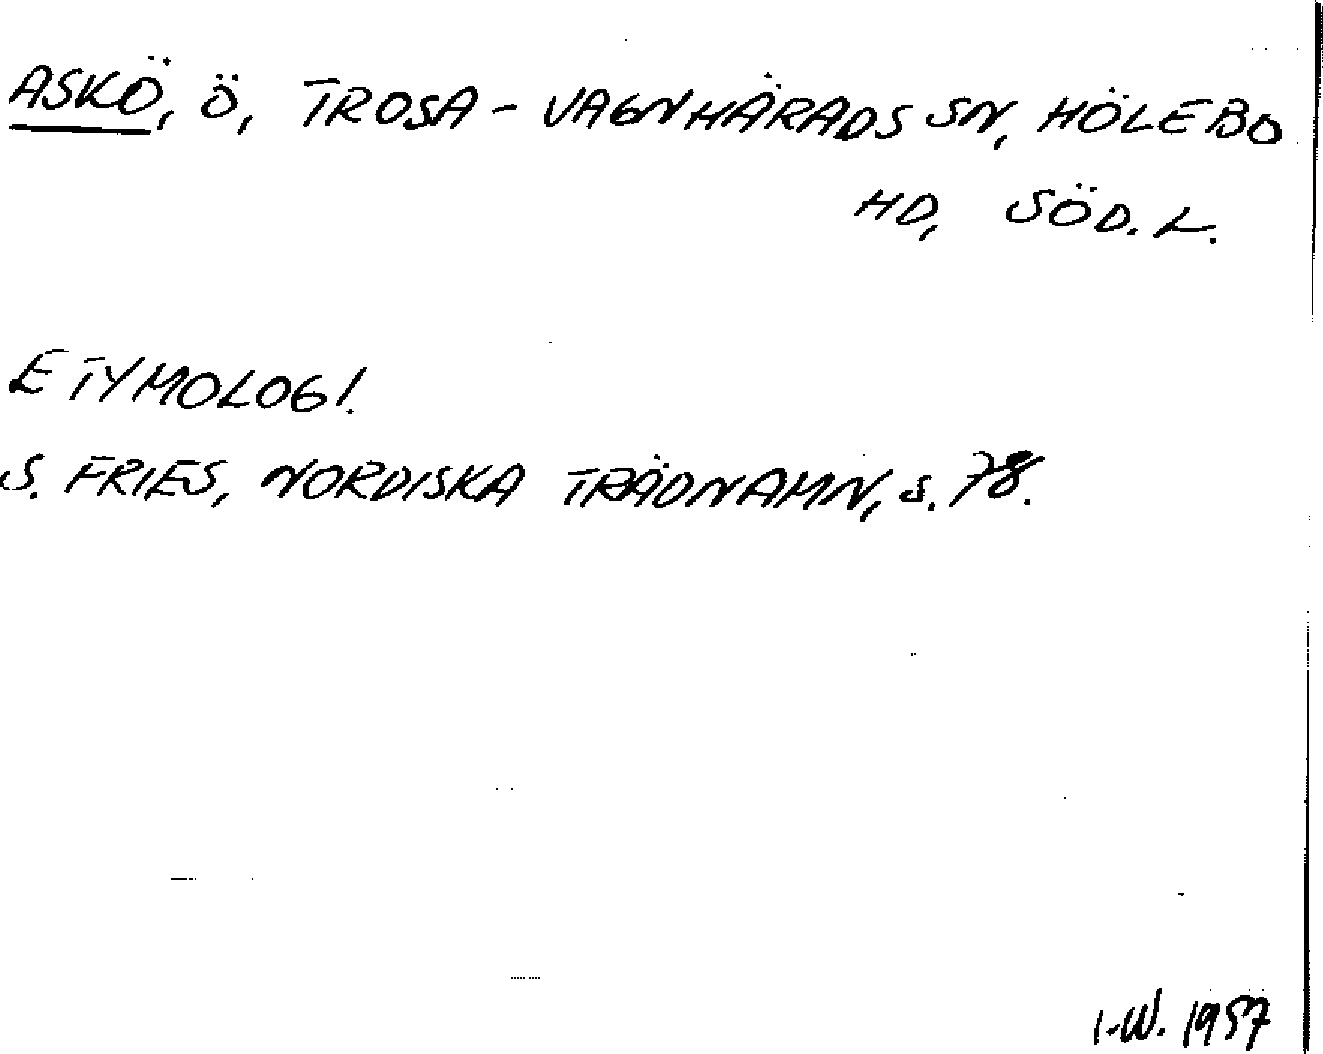 ASKÖ, Ö, TROSA-VAGNHÄRADS SN, HÖLEBO
HD, SÖD. L.
ETYMOLOGI.
S. FRIES, NORDISKA TRÄDNAMN, s. 78.
I-W. 1957